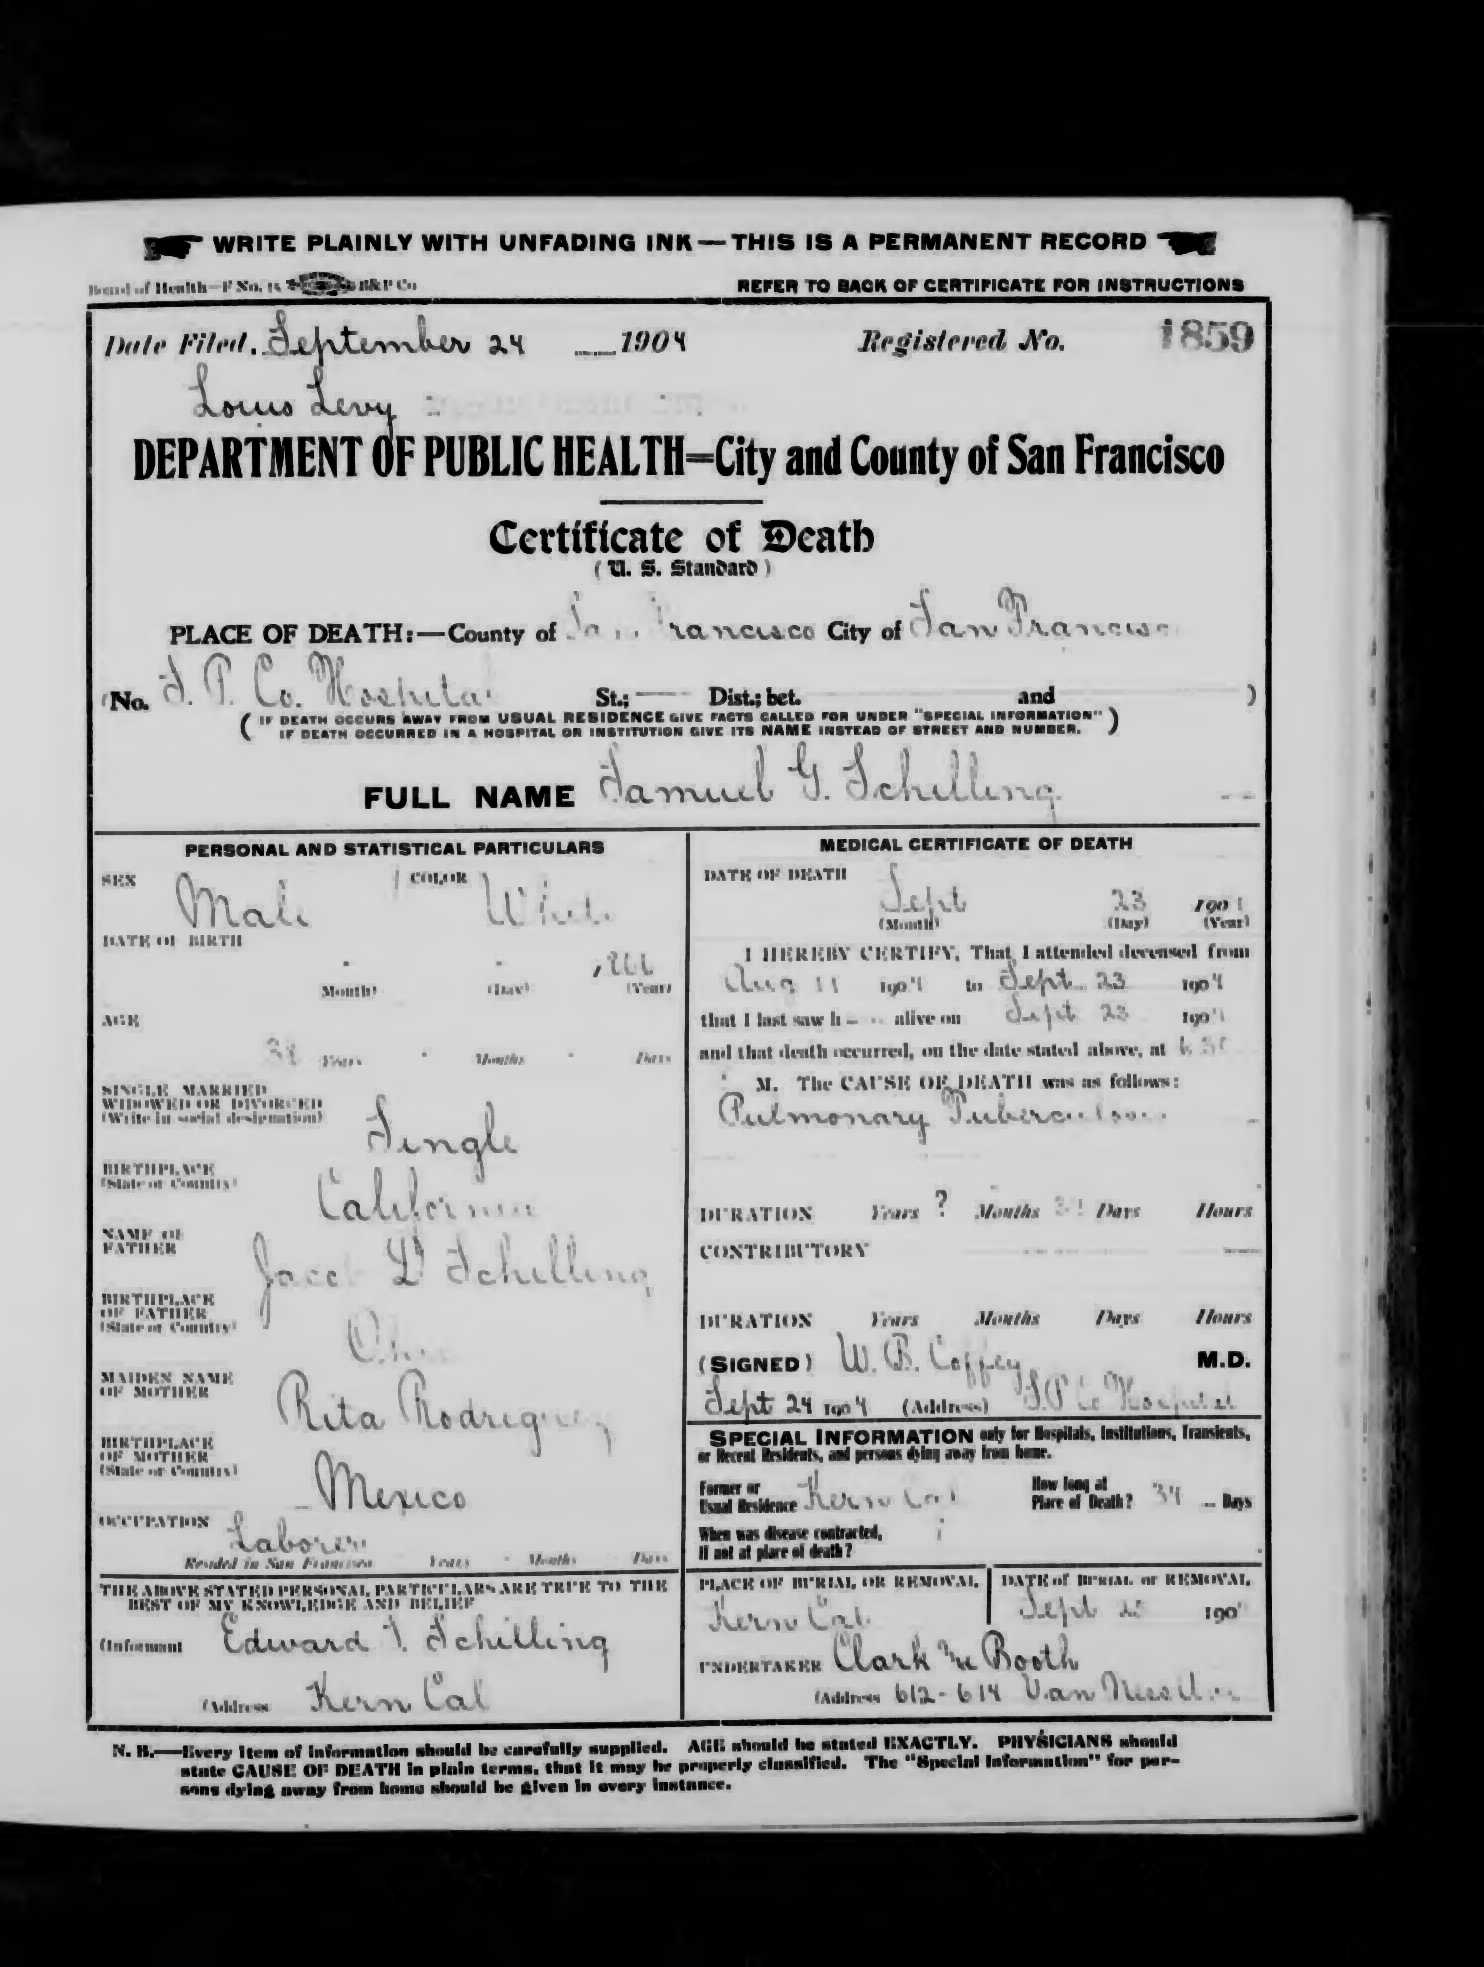 WRITE PLAINLY WITH UNFADING INK — THIS IS A PERMANENT RECORD
Board of Health—F No. 15 B&P Co
REFER TO BACK OF CERTIFICATE FOR INSTRUCTIONS
Date Filed, September 24 1904 Registered No. 1859
Louis Levy
DEPARTMENT OF PUBLIC HEALTH=City and County of San Francisco
Certificate of Death
(U. S. Standard)
PLACE OF DEATH:—County of San Francisco City of San Francisco
(No. S. P. Co. Hospital St.; Dist.; bet. and )
(IF DEATH OCCURS AWAY FROM USUAL RESIDENCE GIVE FACTS CALLED FOR UNDER "SPECIAL INFORMATION"
IF DEATH OCCURRED IN A HOSPITAL OR INSTITUTION GIVE ITS NAME INSTEAD OF STREET AND NUMBER.)
FULL NAME Samuel G. Schilling
PERSONAL AND STATISTICAL PARTICULARS
SEX Male COLOR White
DATE OF BIRTH
(Month) (Day) (Year)
AGE
38 Years Months Days
SINGLE MARRIED
WIDOWED OR DIVORCED
(Write in social designation)
Single
BIRTHPLACE
(State or Country)
California
NAME OF
FATHER
Jacob D Schilling
BIRTHPLACE
OF FATHER
(State or Country)
Ohio
MAIDEN NAME
OF MOTHER
Rita Rodriguez
BIRTHPLACE
OF MOTHER
(State or Country)
Mexico
OCCUPATION
Laborer
Resided in San Francisco Years Months Days
THE ABOVE STATED PERSONAL PARTICULARS ARE TRUE TO THE
BEST OF MY KNOWLEDGE AND BELIEF
(Informant Edward Schilling
(Address Kern Cal
MEDICAL CERTIFICATE OF DEATH
DATE OF DEATH
Sept 23 190
(Month) (Day) (Year)
I HEREBY CERTIFY, That I attended deceased from
Aug 11 1904 to Sept 23 1904
that I last saw h alive on Sept 23 1904
and that death occurred, on the date stated above, at
M. The CAUSE OF DEATH was as follows:
Pulmonary Tuberculosis
DURATION Years ? Months Days Hours
CONTRIBUTORY
DURATION Years Months Days Hours
(SIGNED) W. B. Coffey M.D.
Sept 24 1904 (Address) S P Co Hospital
SPECIAL INFORMATION only for Hospitals, Institutions, Transients,
or Recent Residents, and persons dying away from home.
Former or
Usual Residence Kern Cal
How long at
Place of Death? 34 Days
When was disease contracted,
If not at place of death?
PLACE OF BURIAL OR REMOVAL
Kern Cal
DATE of BURIAL or REMOVAL
Sept 190
UNDERTAKER Clark & Booth
(Address 612-614 Van Ness Ave
N. B.—Every item of information should be carefully supplied. AGE should be stated EXACTLY. PHYSICIANS should
state CAUSE OF DEATH in plain terms, that it may be properly classified. The "Special Information" for per-
sons dying away from home should be given in every instance.